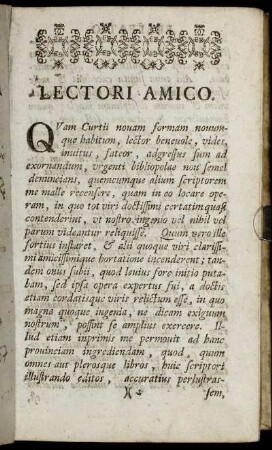 LECTORI AMICO.
QVam Curtii nouam formam nouum-
que habitum, lector beneuole, vides,
inuitus, fateor, adgressus sum ad
exornandum, vrgenti bibliopolae non semel
denuncians, quemcumque alium scriptorem
me malle recensere, quam in eo locare ope-
ram, in quo tot viri doctissimi certatim quasi
contenderint, vt nostro ingenio vel nihil vel
parum videantur reliquisse. Quum vero ille
fortius instaret, & alii quoque viri clarissi-
mi amicissimique hortatione incenderent; tan-
dem onus subii, quod leuius fore initio puta-
bam, sed ipsa opera expertus sui, a doctis
etiam cordatisque viris relictum esse, in quo
magna quoque ingenia, ne dicam exiguum
nostrum, possint se amplius exercere. Il-
lud etiam inprimis me permouit ad hanc
prouinciam ingrediendam, quod, quum
omnes aut plerosque libros, huic scriptori
illustrando editos, accuratius perlustras-
X sem,